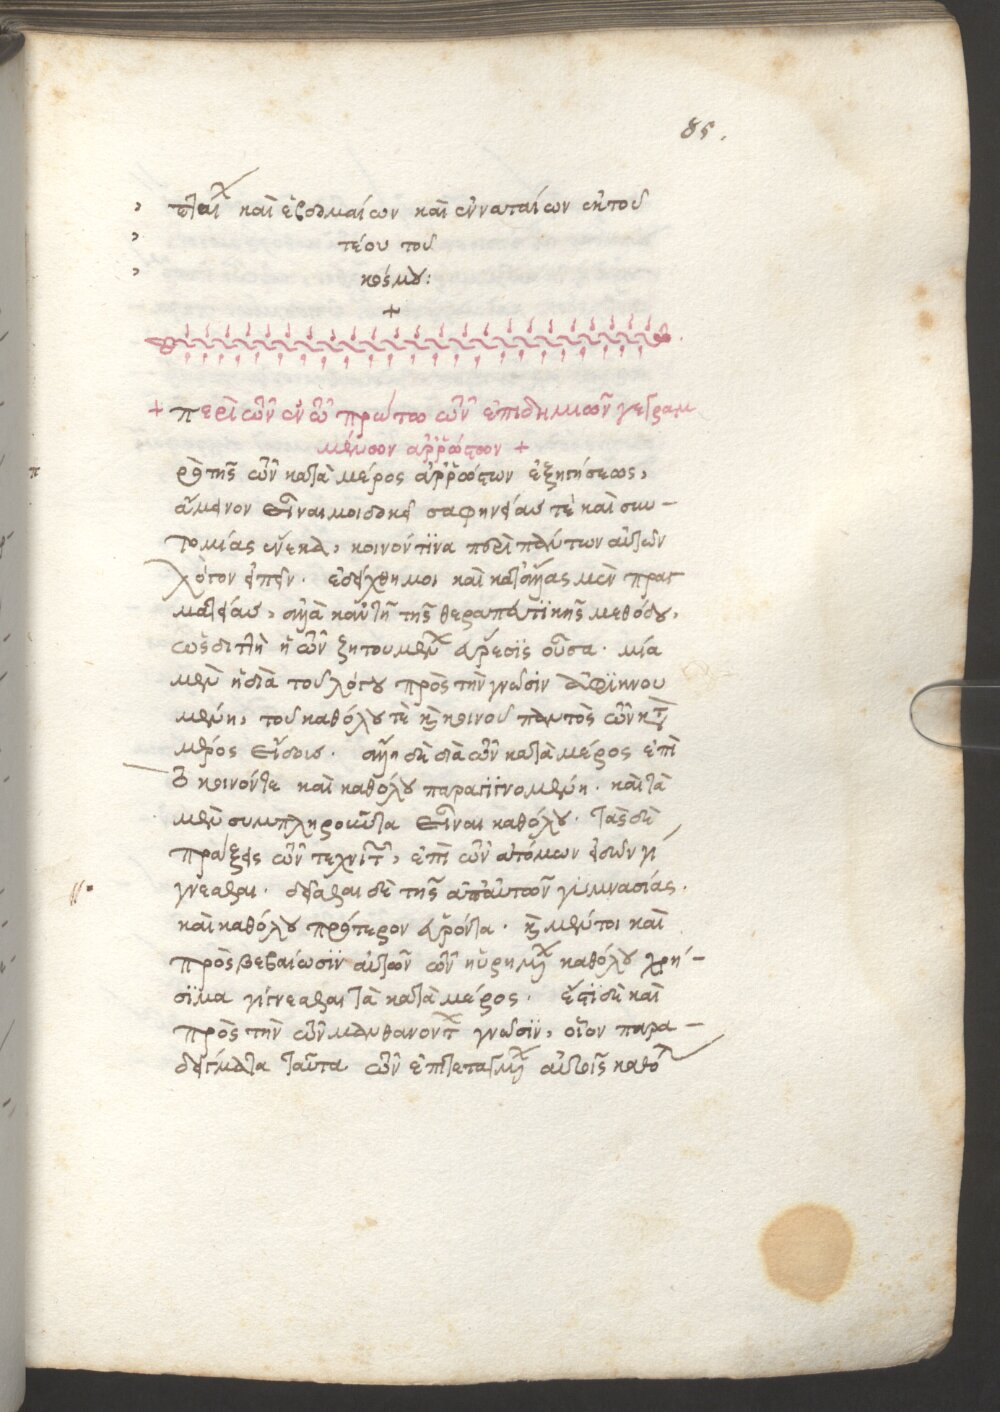 85.
καὶ ἑβδομαίων καὶ ἐνναταίων ἐκ τοῦ
τέου τοῦ
κόσμου:
+
+ περὶ τῶν ἐν τῷ πρώτῳ τῶν ἐπιδημιῶν γεγραμ
μένων ἀρρώστων +
τῆς τῶν κατὰ μέρος ἀρρώστων ἐξηγήσεως,
ἄμεινον εἶναι μοι δοκεῖ σαφηνείας τὲ καὶ συν-
τομίας ἕνεκα, κοινόν τινα περὶ πάντων αὐτῶν
λόγον εἰπεῖν. ἐδείχθη μοι καὶ κατ' ἄλλας μὲν πραγ
ματείας, ἀλλὰ κἀν τῇ τῆς θεραπευτικῆς μεθόδου,
ὡς διττὴ ἡ τῶν ζητουμένων εὕρεσις οὖσα. μία
μὲν ἡ διὰ τοῦ λόγου πρὸς τὴν γνῶσιν ἀφικνου
μένη, τοῦ καθόλου τὲ καὶ κοινοῦ παντὸς τῶν κατὰ
μέρος εἴδους. ἄλλη δὲ διὰ τῶν κατὰ μέρος ἐπὶ
τὸ κοινόν τε καὶ καθόλου παραγιγνομένη. καὶ τὰ
μὲν συμπληροῦντα εἶναι καθόλου. τὰς δὲ
πράξεις τῶν τεχνιτῶν, ἐπὶ τῶν ἀτόμων οὐσιῶν γί
γνεσθαι. δεῖσθαι δὲ τῆς ἐπ' αὐτῶν γυμνασίας.
καὶ καθόλου πρότερον εὑρόντα. καὶ μέντοι καὶ
πρὸς βεβαίωσιν αὐτῶν τῶν ηὑρημένων καθόλου χρή-
σιμα γίγνεσθαι τὰ κατὰ μέρος. ἔτι δὲ καὶ
πρὸς τὴν τῶν μανθανόντων γνῶσιν, οἷον παρα-
δείγματα ταῦτα τῶν ἐπιτεταγμένων αὐτοῖς καθό